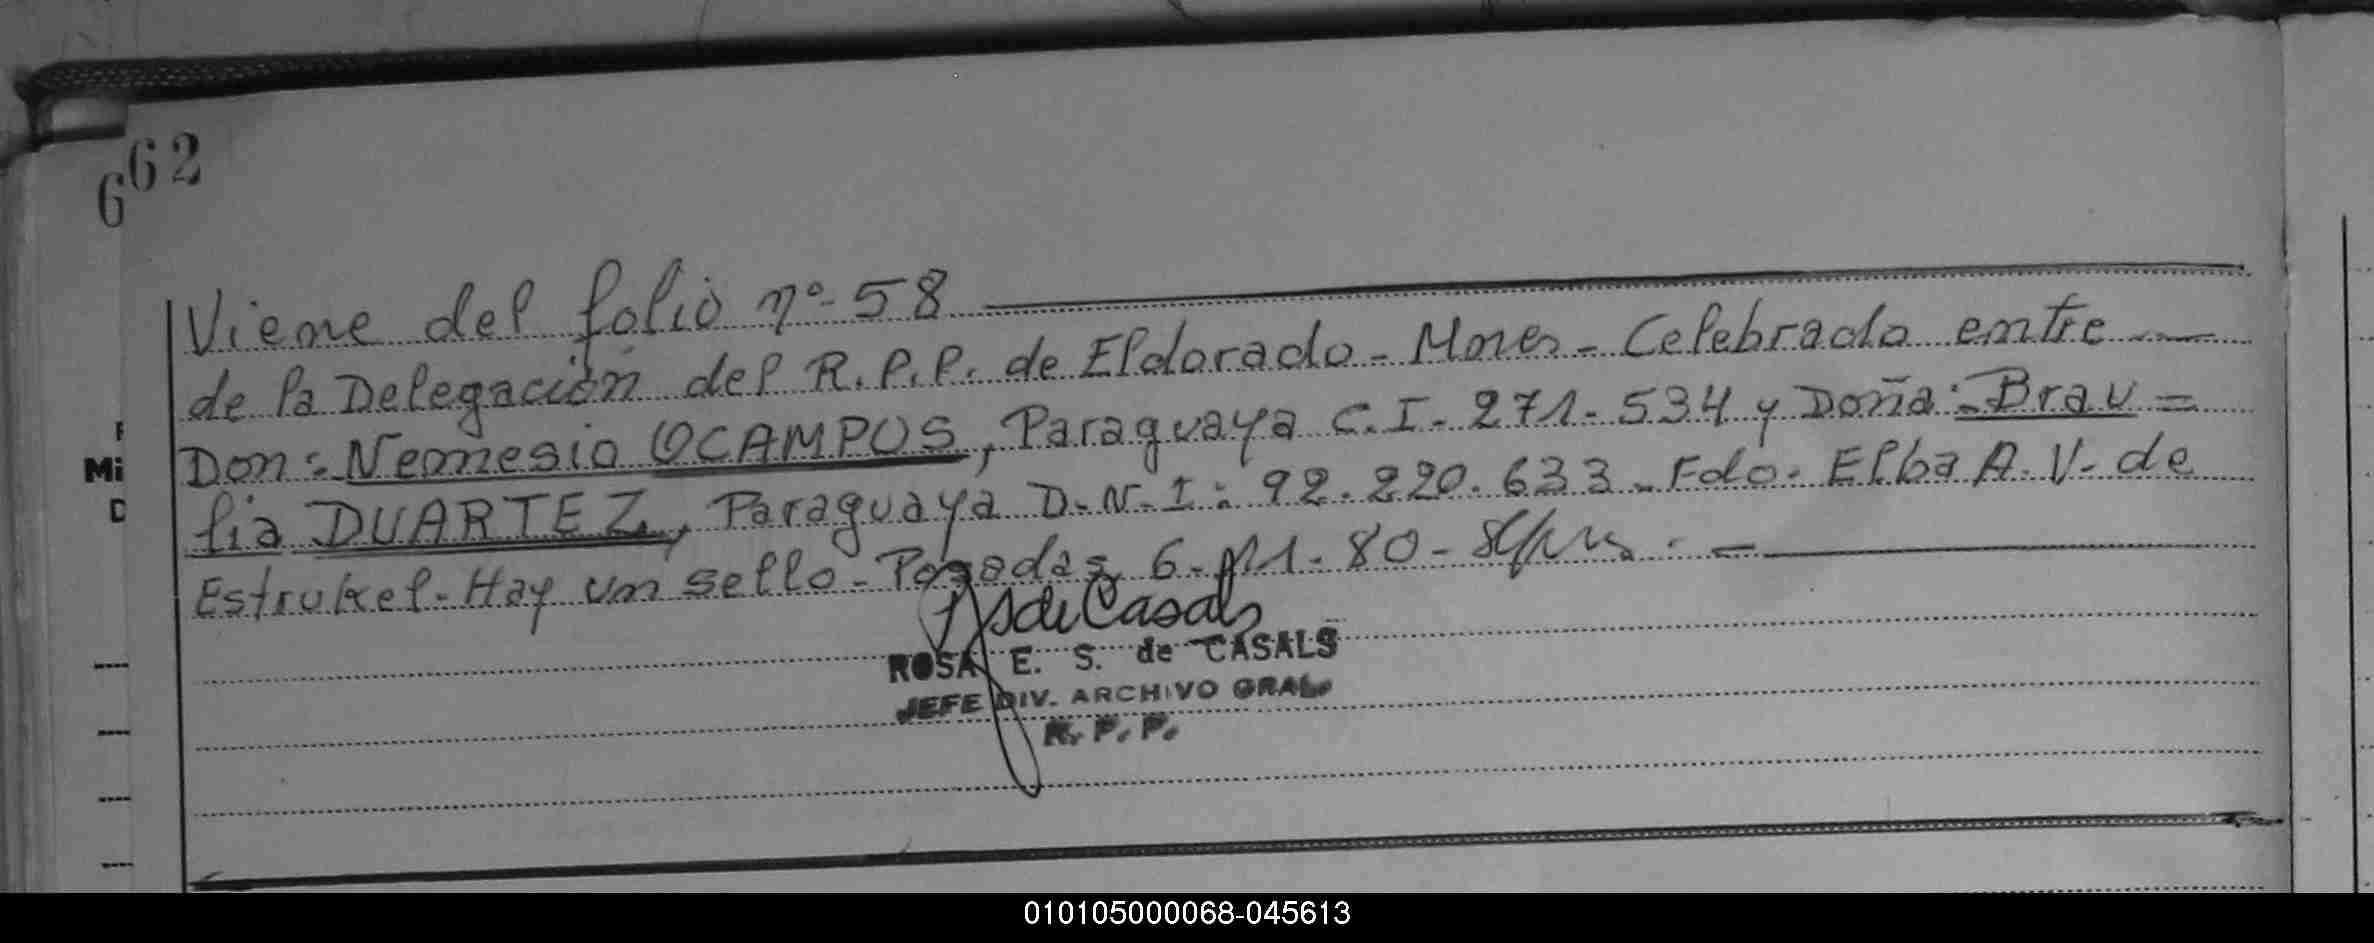 62
6
Viene del folio nº-58
de la Delegación del R.P.P. de Eldorado - Mnes - Celebrado entre
Don: Nemesio OCAMPOS, Paraguaya C.I. 271.534 y Doña: Brau =
lia DUARTEZ, Paraguaya D.N.I: 92.220.633. Fdo. Elba A. V. de
Estrukel. Hay un sello. Posadas, 6-11-80-
ROSA E. S. de CASALS
JEFE DIV. ARCHIVO GRAL.
R. P. P.
Mi
010105000068-045613